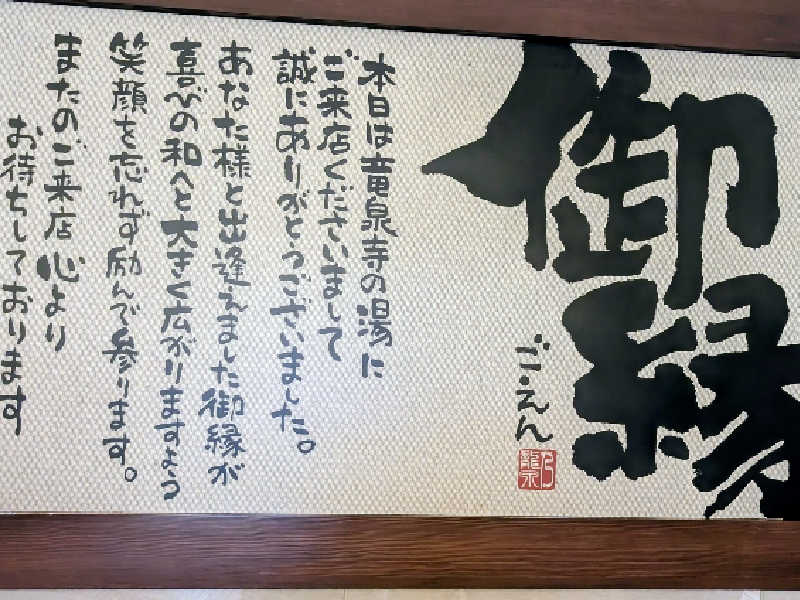 御縁
ご・えん
本日は竜泉寺の湯に
ご来店くださいまして
誠にありがとうございました。
あなた様と出逢えました御縁が
喜びの和へと大きく広がりますよう
笑顔を忘れず励んで参ります。
またのご来店心より
お待ちしております